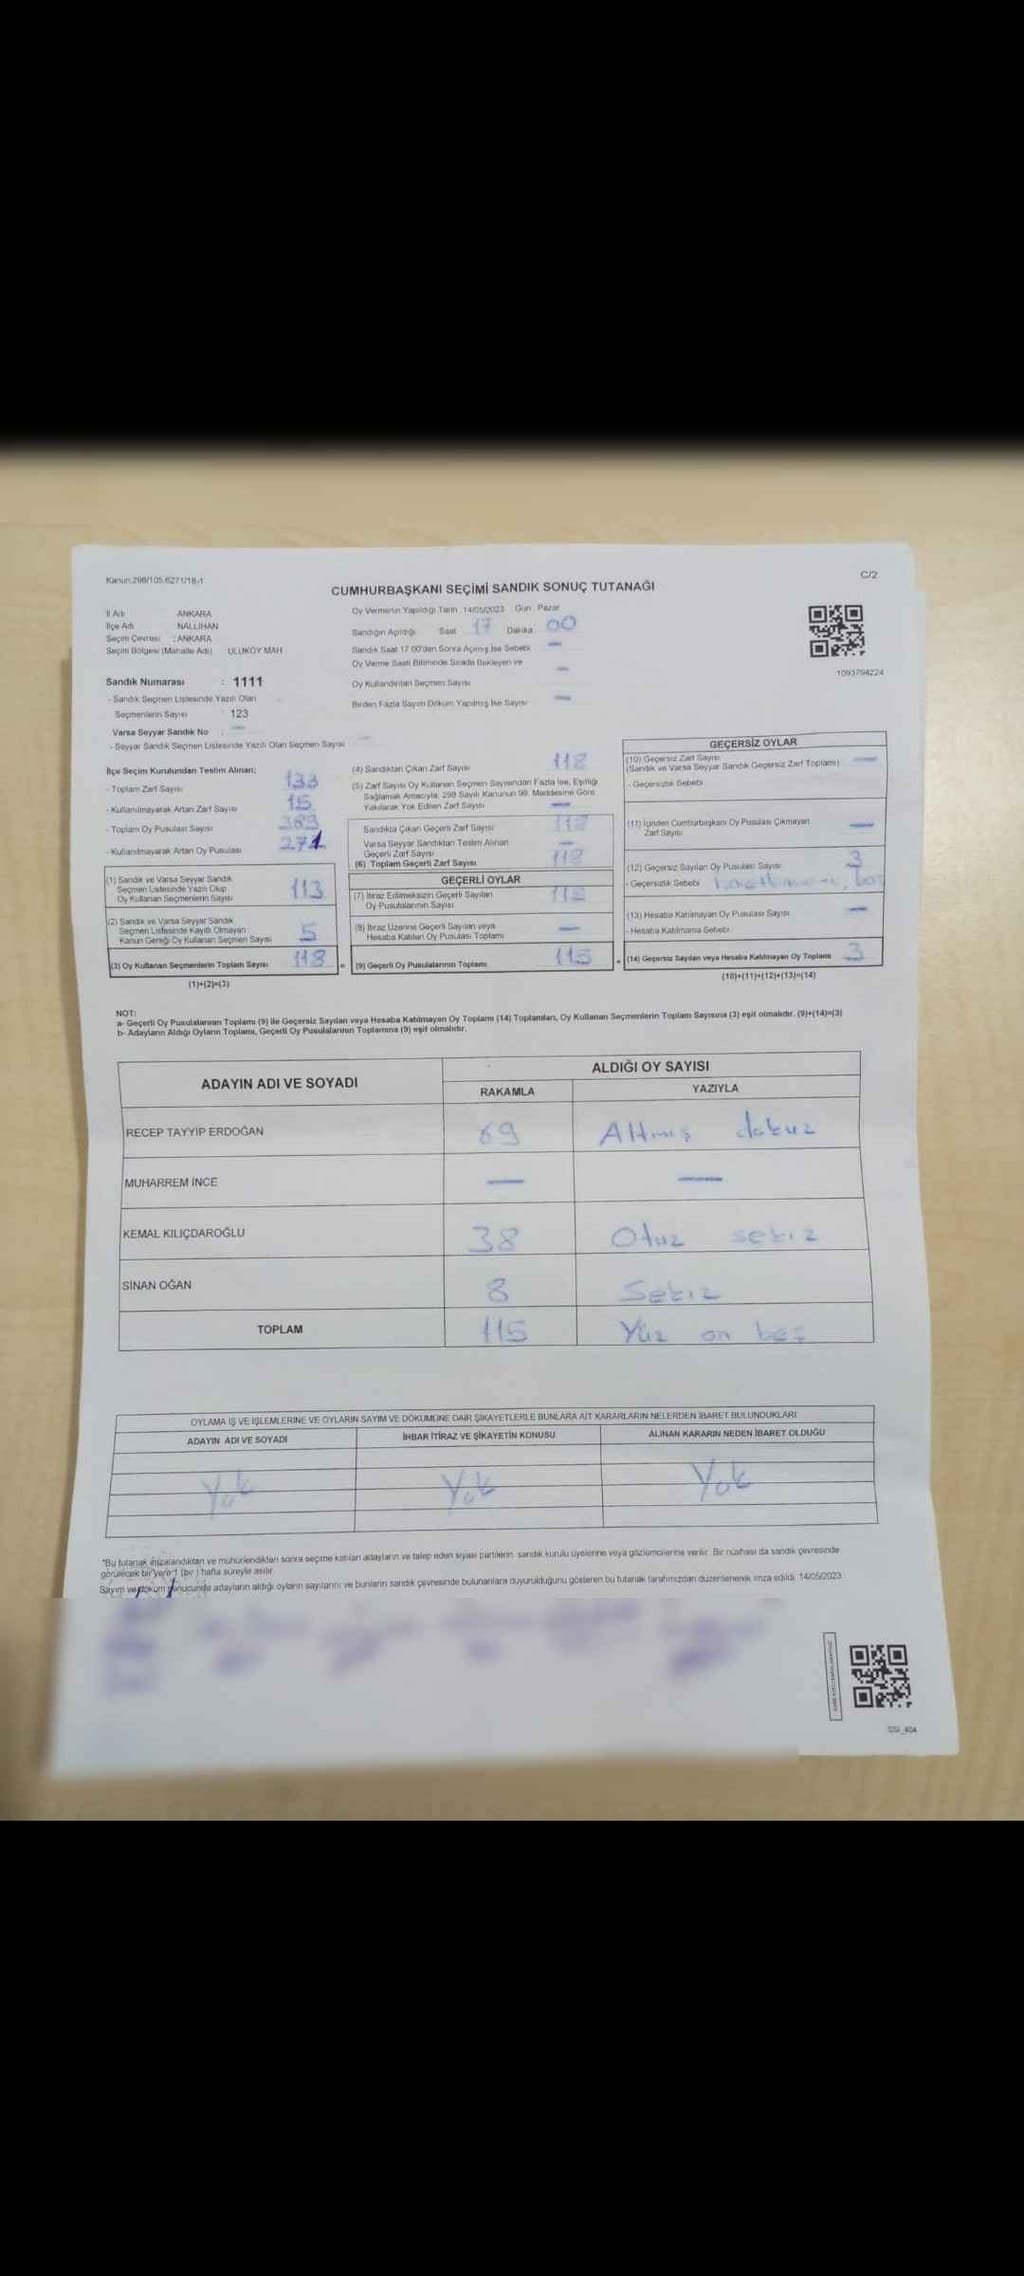 Kanun:298/105.6271/18-1
C/2
CUMHURBAŞKANI SEÇİMİ SANDIK SONUÇ TUTANAĞI
İl Adı ANKARA
İlçe Adı NALLIHAN
Seçim Çevresi : ANKARA
Seçim Bölgesi (Mahalle Adı) ULUKÖY MAH
Sandık Numarası : 1111
- Sandık Seçmen Listesinde Yazılı Olan
Seçmenlerin Sayısı 123
Varsa Seyyar Sandık No
- Seyyar Sandık Seçmen Listesinde Yazılı Olan Seçmen Sayısı
Oy Vermenin Yapıldığı Tarih 14/05/2023 Gün Pazar
Sandığın Açıldığı Saat 17 Dakika 00
Sandık Saat 17.00'den Sonra Açılmış İse Sebebi —
Oy Verme Saati Bitiminde Sırada Bekleyen ve
Oy Kullandırılan Seçmen Sayısı —
Birden Fazla Sayım Döküm Yapılmış İse Sayısı —
1093794224
İlçe Seçim Kurulundan Teslim Alınan;
- Toplam Zarf Sayısı 133
- Kullanılmayarak Artan Zarf Sayısı 15
- Toplam Oy Pusulası Sayısı 389
- Kullanılmayarak Artan Oy Pusulası 271
(1) Sandık ve Varsa Seyyar Sandık
Seçmen Listesinde Yazılı Olup
Oy Kullanan Seçmenlerin Sayısı 113
(2) Sandık ve Varsa Seyyar Sandık
Seçmen Listesinde Kayıtlı Olmayan
Kanun Gereği Oy Kullanan Seçmen Sayısı 5
(3) Oy Kullanan Seçmenlerin Toplam Sayısı 118
(1)+(2)=(3)
(4) Sandıktan Çıkan Zarf Sayısı 118
(5) Zarf Sayısı Oy Kullanan Seçmen Sayısından Fazla İse, Eşitliği
Sağlamak Amacıyla; 298 Sayılı Kanunun 98. Maddesine Göre
Yakılarak Yok Edilen Zarf Sayısı —
Sandıkta Çıkan Geçerli Zarf Sayısı 118
Varsa Seyyar Sandıktan Teslim Alınan
Geçerli Zarf Sayısı —
(6) Toplam Geçerli Zarf Sayısı 118
GEÇERLİ OYLAR
(7) İtiraz Edilmeksizin Geçerli Sayılan
Oy Pusulalarının Sayısı
(8) İtiraz Üzerine Geçerli Sayılan veya
Hesaba Katılan Oy Pusulası Toplamı —
= (9) Geçerli Oy Pusulalarının Toplamı 115
GEÇERSİZ OYLAR
(10) Geçersiz Zarf Sayısı
(Sandık ve Varsa Seyyar Sandık Geçersiz Zarf Toplamı) —
- Geçersizlik Sebebi
(11) İçinden Cumhurbaşkanı Oy Pusulası Çıkmayan
Zarf Sayısı —
(12) Geçersiz Sayılan Oy Pusulası Sayısı 3
- Geçersizlik Sebebi
(13) Hesaba Katılmayan Oy Pusulası Sayısı —
- Hesaba Katılmama Sebebi
+ (14) Geçersiz Sayılan veya Hesaba Katılmayan Oy Toplamı 3
(10)+(11)+(12)+(13)=(14)
NOT:
a- Geçerli Oy Pusulalarının Toplamı (9) ile Geçersiz Sayılan veya Hesaba Katılmayan Oy Toplamı (14) Toplamları, Oy Kullanan Seçmenlerin Toplam Sayısına (3) eşit olmalıdır. (9)+(14)=(3)
b- Adayların Aldığı Oyların Toplamı, Geçerli Oy Pusulalarının Toplamına (9) eşit olmalıdır.
ADAYIN ADI VE SOYADI
ALDIĞI OY SAYISI
RAKAMLA YAZIYLA
RECEP TAYYİP ERDOĞAN 69 Altmış dokuz
MUHARREM İNCE — —
KEMAL KILIÇDAROĞLU 38 Otuz sekiz
SİNAN OĞAN 8 Sekiz
TOPLAM 115 Yüz on beş
OYLAMA İŞ VE İŞLEMLERİNE VE OYLARIN SAYIM VE DÖKÜMÜNE DAİR ŞİKAYETLERLE BUNLARA AİT KARARLARIN NELERDEN İBARET BULUNDUKLARI
ADAYIN ADI VE SOYADI İHBAR İTİRAZ VE ŞİKAYETİN KONUSU ALINAN KARARIN NEDEN İBARET OLDUĞU
Yok Yok Yok
*Bu tutanak imzalandıktan ve mühürlendikten sonra seçime katılan adayların ve talep eden siyasi partilerin sandık kurulu üyelerine veya gözlemcilerine verilir. Bir nüshası da sandık çevresinde
görülecek bir yere 1 (bir) hafta süreyle asılır.
Sayım ve döküm sonucunda adayların aldığı oyların sayılarını ve bunların sandık çevresinde bulunanlara duyurulduğunu gösteren bu tutanak tarafımızdan düzenlenerek imza edildi. 14/05/2023